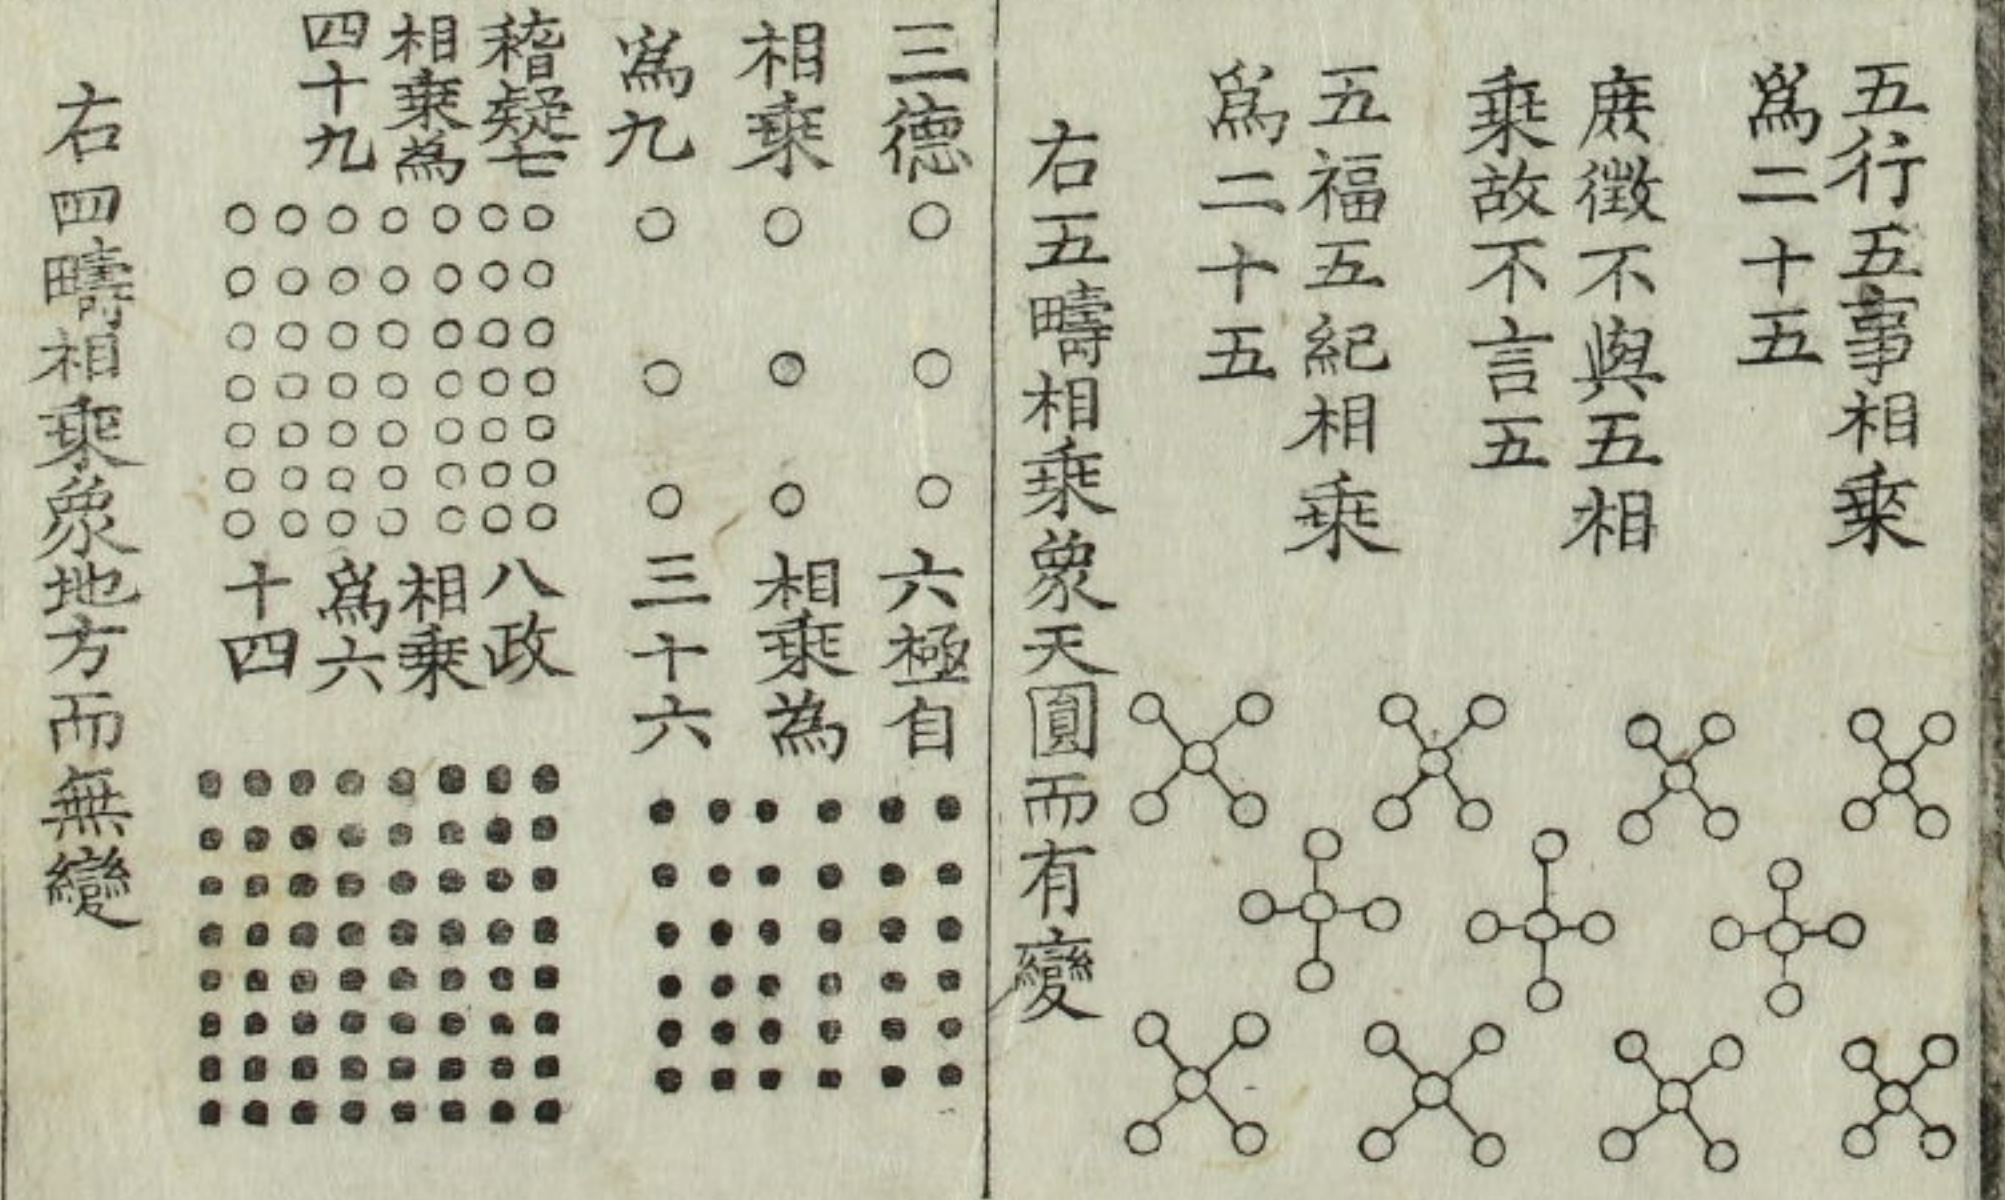 五行五事相乘
爲二十五
庶徵不與五相
乘故不言五
五福五紀相乘
爲二十五
右五疇相乘象天圓而有變
三德
相乘
爲九
六極自
相乘為
三十六
稽疑七
相乘為
四十九
八政
相乘
爲六
十四
右四疇相乘象地方而無變